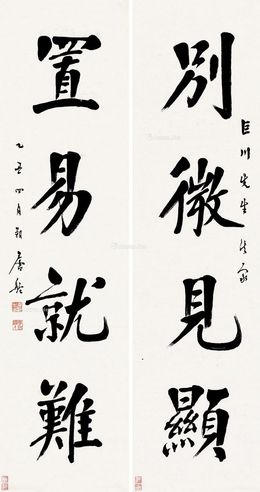 別微見顯
巨川先生法家
置易就難
乙丑四月朔